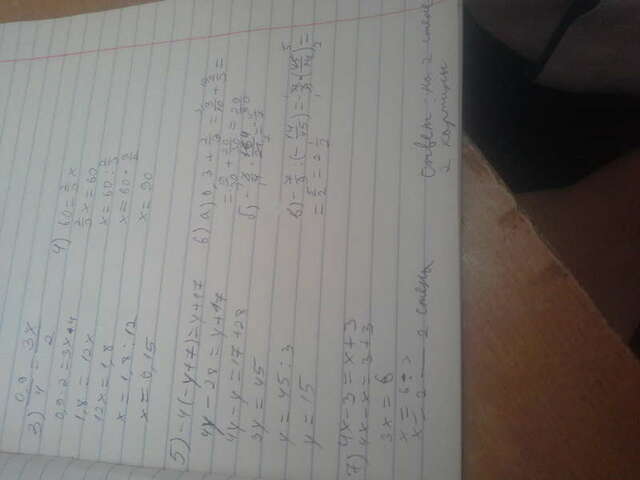 3) 0,9/4 = 3x/2
0,9·2=3x·4
1,8 = 12x
12x = 1,8
x = 1,8:12
x = 0,15
4) 60 = 2/3 x
2/3 x = 60
x = 60 : 2/3
x = 60 · 3/2
x = 90
5) -4(-y+7)=y+17
4y - 28 = y+17
4y - y = 17+28
3y = 45
y = 45 : 3
y = 15
6) а) 0,3 +
б)
в) - : (- 14/15) =
= 5/2 = 2 1/2
7) 4x-3 = x+3
4x-x = 3+3
3x = 6
x = 6 : 3
x = 2 — 2 стена
Ответ: на 2 стене
2 картины